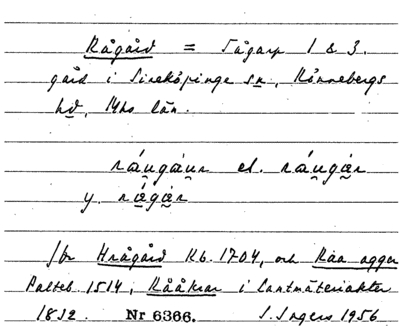 Rågård = Tågarp 1 & 3.
gård i Sireköpinge sn, Rönnebergs
hd, Mhs län.
råu̯gåu̯r el. råu̯går
y. rågår
/för Hrågård Kb. 1704, och Raa agger
Palteb. 1514, Rååkrar i lantmäteriakter
1832. Nr 6366. I. Ingers 1956